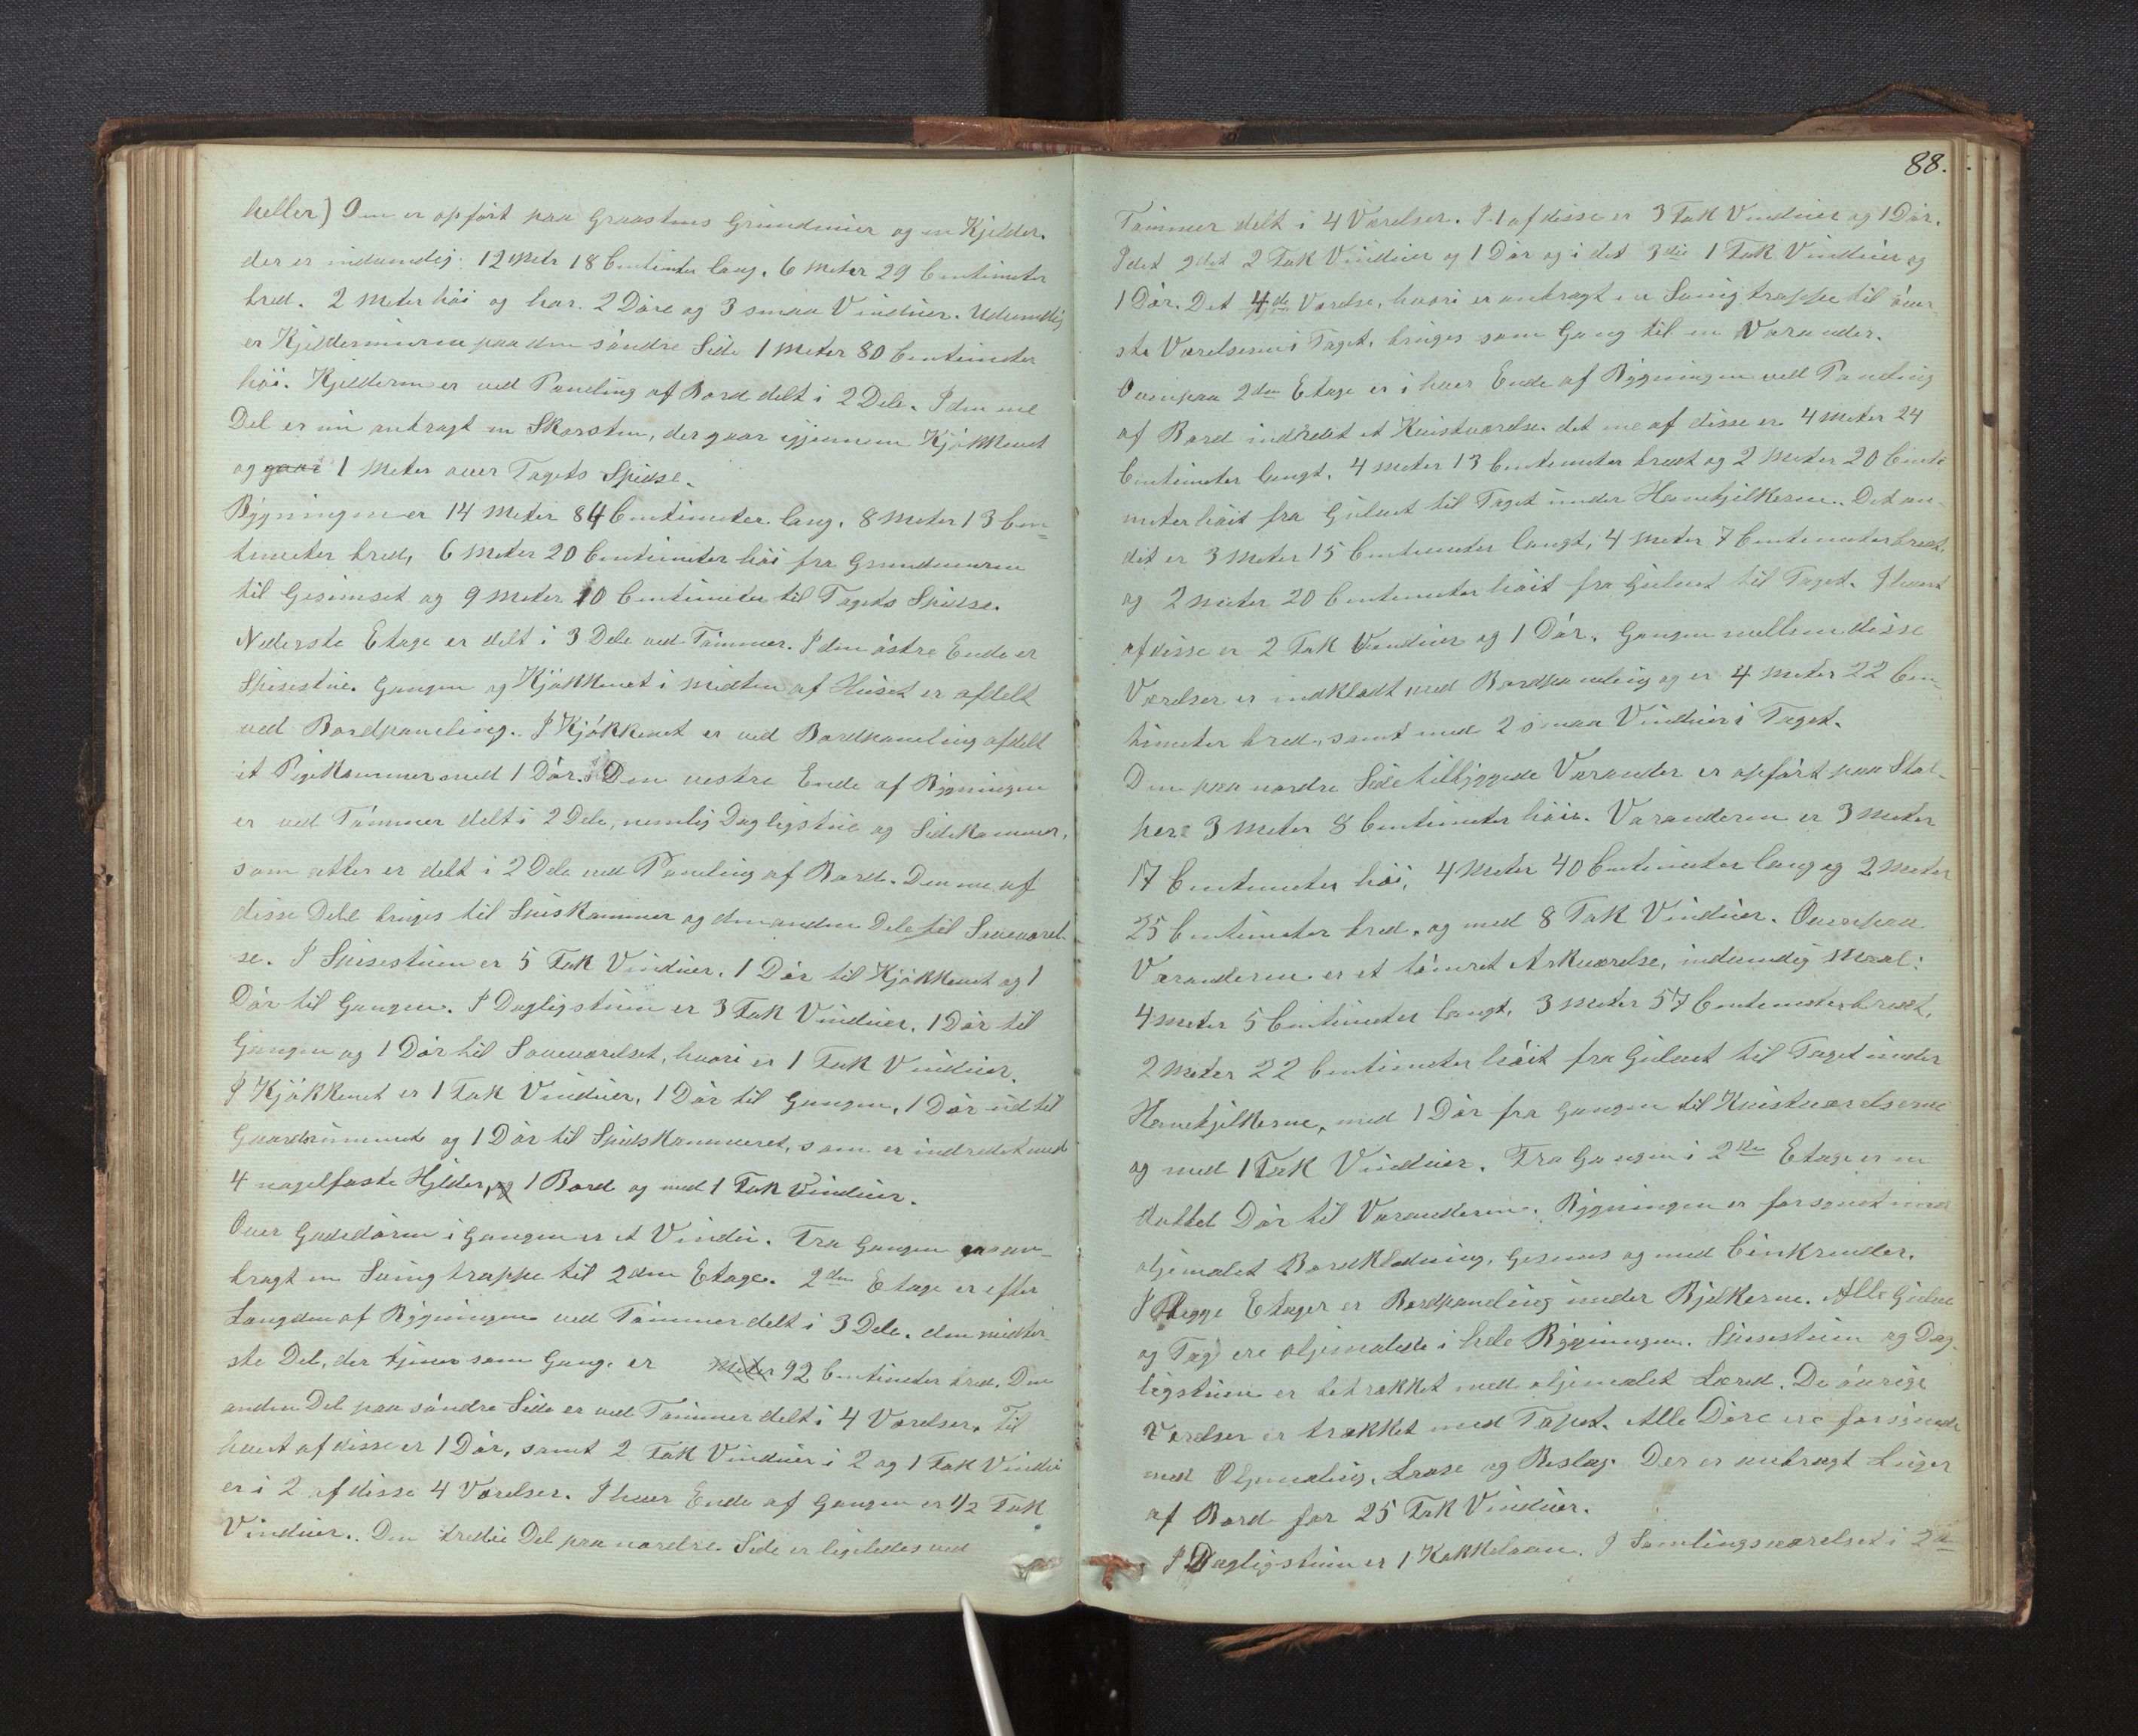 heller) Den er opført paa Graastens Grundmur og en Kjelder.
der er indvendig: 12 Metr 18 Centimeter lang, 6 Meter 29 Centimeter
bred. 2 Meter høi og har 2 Døre og 3 smaa Vinduer. Udvendig
er Kjeldermuren paa den søndre Side 1 Meter 80 Centimeter
høi. Kjelderen er ved Paneling af Bord delt i 2 Dele. I den ene
Del er ny anbragt en Skorsten, der gaar igjennem Kjøkkenet
og gaar 1 Meter over Tagets Spidse.
Bygningen er 14 Meter 84 Centimeter lang, 8 Meter 13 Cen=
timeter bred, 6 Meter 20 Centimeter høi fra Grundmuren
til Gesimset og 9 Meter 10 Centimeter til Tagets Spidse.
Nederste Etage er delt i 3 Dele ved Tømmer. I den østre Ende er
Spisestue. Gangen og Kjøkkenet i midten af Huset er afdelt
ved Bordpaneling. I Kjøkkenet er ved Bordpaneling afdelt
et Pigekammer med 1 Dør. I Den vestre Ende af Bygningen
er ved Tømmer delt i 2 Dele, nemlig Dagligstue og Sidekammer,
som atter er delt i 2 Dele ved Paneling af Bord. Den ene af
disse Dele bruges til Spiskammer og den anden Dele til Soveværel-
se. I Spisestuen er 5 Fak Vinduer, 1 Dør til Kjøkkenet og 1
Dør til Gangen. I Dagligstuen er 3 Fak Vinduer, 1 Dør til
Gangen og 1 Dør til Soveværelset, hvori er 1 Fak Vinduer.
I Kjøkkenet er 1 Fak Vinduer, 1 Dør til Gangen, 1 Dør ud til
Gaardsrummet og 1 Dør til Spidskammeret, som er indredet med
4 nagelfaste Hylder, og 1 Bord og med 1 Fak Vinduer.
Over Gadedøren i Gangen er et Vindu. Fra Gangen er an-
bragt en Svingtrappe til 2den Etage. 2den Etage er efter
Længden af Bygningen ved Tømmer delt i 3 Dele. den midter-
ste Del, der tjener som Gang, er Meter 92 Centimeter bred. Den
anden Del paa søndre Side er ved Tømmer delt i 4 Værelser. Til
hvert af disse er 1 Dør, samt 2 Fak Vinduer i 2 og 1 Fak Vindu
er i 2 af disse 4 Værelser. I hver Ende af Gangen er 1/2 Fak
Vinduer. Den tredie Del paa nordre Side er ligeledes ved
88.
Tømmer delt i 4 Værelser. I 1 af disse er 3 Fak Vinduer og 1 Dør.
I det 2det 2 Fak Vinduer og 1 Dør og i det 3die 1 Fak Vinduer og
1 Dør. Det 4de Værelse, hvori er anbragt en Svingtrappe til øver
ste Værelserne i Taget, bruges som Gang til en Varander.
Ovenpaa 2den Etage er i hver Ende af Bygningen ved Paneling
af Bord indredet et Kvistværelse. det ene af disse er 4 Meter 24
Centimeter langt, 4 Meter 13 Centimeter bredt og 2 Meter 20 Centi
meter høit fra Gulvet til Taget under Hanebjelkerne. Det an-
det er 3 Meter 15 Centimeter langt, 4 Meter 7 Centimeter bredt,
og 2 Meter 20 Centimeter høit fra Gulvet til Taget. I hvert
af disse er 2 Fak Vinduer og 1 Dør. Gangen mellem disse
Værelser er indklædt med Bordpaneling og er 4 Meter 22 Cen-
timeter bred, samt med 2 smaa Vinduer i Taget.
Den paa nordre Side tilbyggede Varander er opført paa Stol-
per 3 Meter 8 Centimeter høie. Varanderen er 3 Meter
17 Centimeter høi, 4 Meter 40 Centimeter lang og 2 Meter
25 Centimeter bred, og med 8 Fak Vinduer. Ovenpaa
Varanderen er et tømret Arkværelse, indvendig Maal:
4 Meter 5 Centimeter langt, 3 Meter 57 Centimeter bredt,
2 Meter 22 Centimeter høit fra Gulvet til Taget under
Hanebjelkerne, med 1 Dør fra Gangen til Kvistværelserne
og med 1 Fak Vinduer. Fra Gangen i 2den Etage er en
dobbel Dør til Varanderen. Bygningen er forsynet med
oljemalet Bordklædning, Gesims og med Cinkrender.
I Begge Etager er Bordpaneling under Bjelkerne. Alle Gulve
og Tag ere oljemalede i hele Bygningen. Spisestuen og Dag-
ligstuen er betrækket med oljemalet Lærred. De øvrige
Værelser er trækket med Tapet. Alle Døre ere forsynede
med Oljemaling, Laase og Beslag. Der er anbragt Luger
af Bord for 25 Fak Vinduer.
I Dagligstuen er 1 Kakkelovn. I Samlingsværelset i 2d